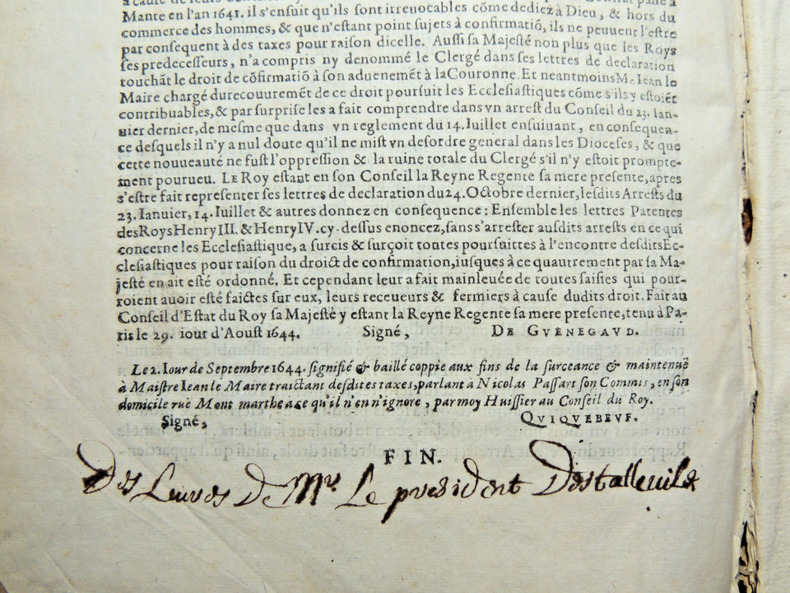 Mante en l'an 1641. il s'ensuit qu'ils sont irreuocables cõme dediez à Dieu, & hors du
commerce des hommes, & que n'estant point sujets à confirmatiõ, ils ne peuuent l'estre
par consequent à des taxes pour raison dicelle. Aussi sa Majesté non plus que les Roys
ses predecesseurs, n'a compris ny denommé le Clergé dans ses lettres de declaration
touchãt le droit de cõfirmatiõ à son aduenemẽt à la Couronne. Et neantmoins Me Iean le
Maire chargé du recouuremẽt de ce droit poursuit les Ecclesiastiques cõme s'ils y estoiẽt
contribuables, & par surprise les a fait comprendre dans vn arrest du Conseil du 23. Ian-
uier dernier, de mesme que dans vn reglement du 14. Iuillet ensuiuant, en consequen-
ce desquels il n'y a nul doute qu'il ne mist vn desordre general dans les Dioceses, & que
cette nouueauté ne fust l'oppression & la ruine totale du Clergé s'il n'y estoit prompte-
ment pourueu. LE Roy estant en son Conseil la Reyne Regente sa mere presente, apres
s'estre fait representer ses lettres de declaration du 24. Octobre dernier, lesdits Arrests du
23. Ianuier, 14. Iuillet & autres donnez en consequence: Ensemble les lettres Patentes
des Roys Henry III. & Henry IV. cy-dessus enoncez, sans s'arrester ausdits arrests en ce qui
concerne les Ecclesiastique, a surcis & surçoit toutes poursuittes à l'encontre desdits Ec-
clesiastiques pour raison du droict de confirmation, iusques à ce qu'autrement par sa Ma-
jesté en ait esté ordonné. Et cependant leur a fait mainleuée de toutes saisies qui pour-
roient auoir esté faictes sur eux, leurs receueurs & fermiers à cause dudits droit. Fait au
Conseil d'Estat du Roy sa Majesté y estant la Reyne Regente sa mere presente, tenu à Pa-
ris le 29. iour d'Aoust 1644. Signé, DE GVENEGAVD.
Le 2. Iour de Septembre 1644. signifié & baillé coppie aux fins de la surceance & maintenuë
à Maistre Iean le Maire traictant desdites taxes, parlant a Nicolas Passart son Commis, en son
domicile ruë Mont marthe a ce qu'il n'en n'ignore, par moy Huissier au Conseil du Roy.
Signé, QVIQVEBEVF.
FIN.
Des Liures De Mr Le president Destalleuile